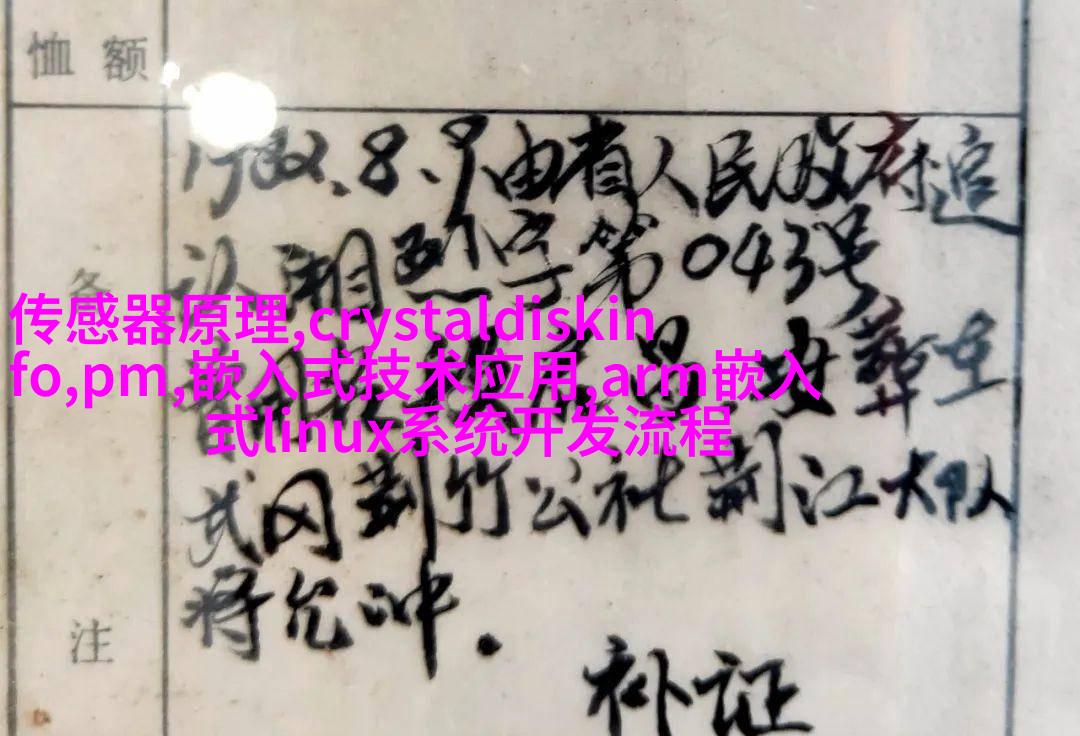 恤额
1982.8.9由省人民政府追
认湘烈字第043号
备
传感器原理,crystaldiskin
fo,pm,嵌入式技术应用,arm嵌入
式linux系统开发流程
葬在
武冈荆竹公社荆江大队
将允冲.
注
补证